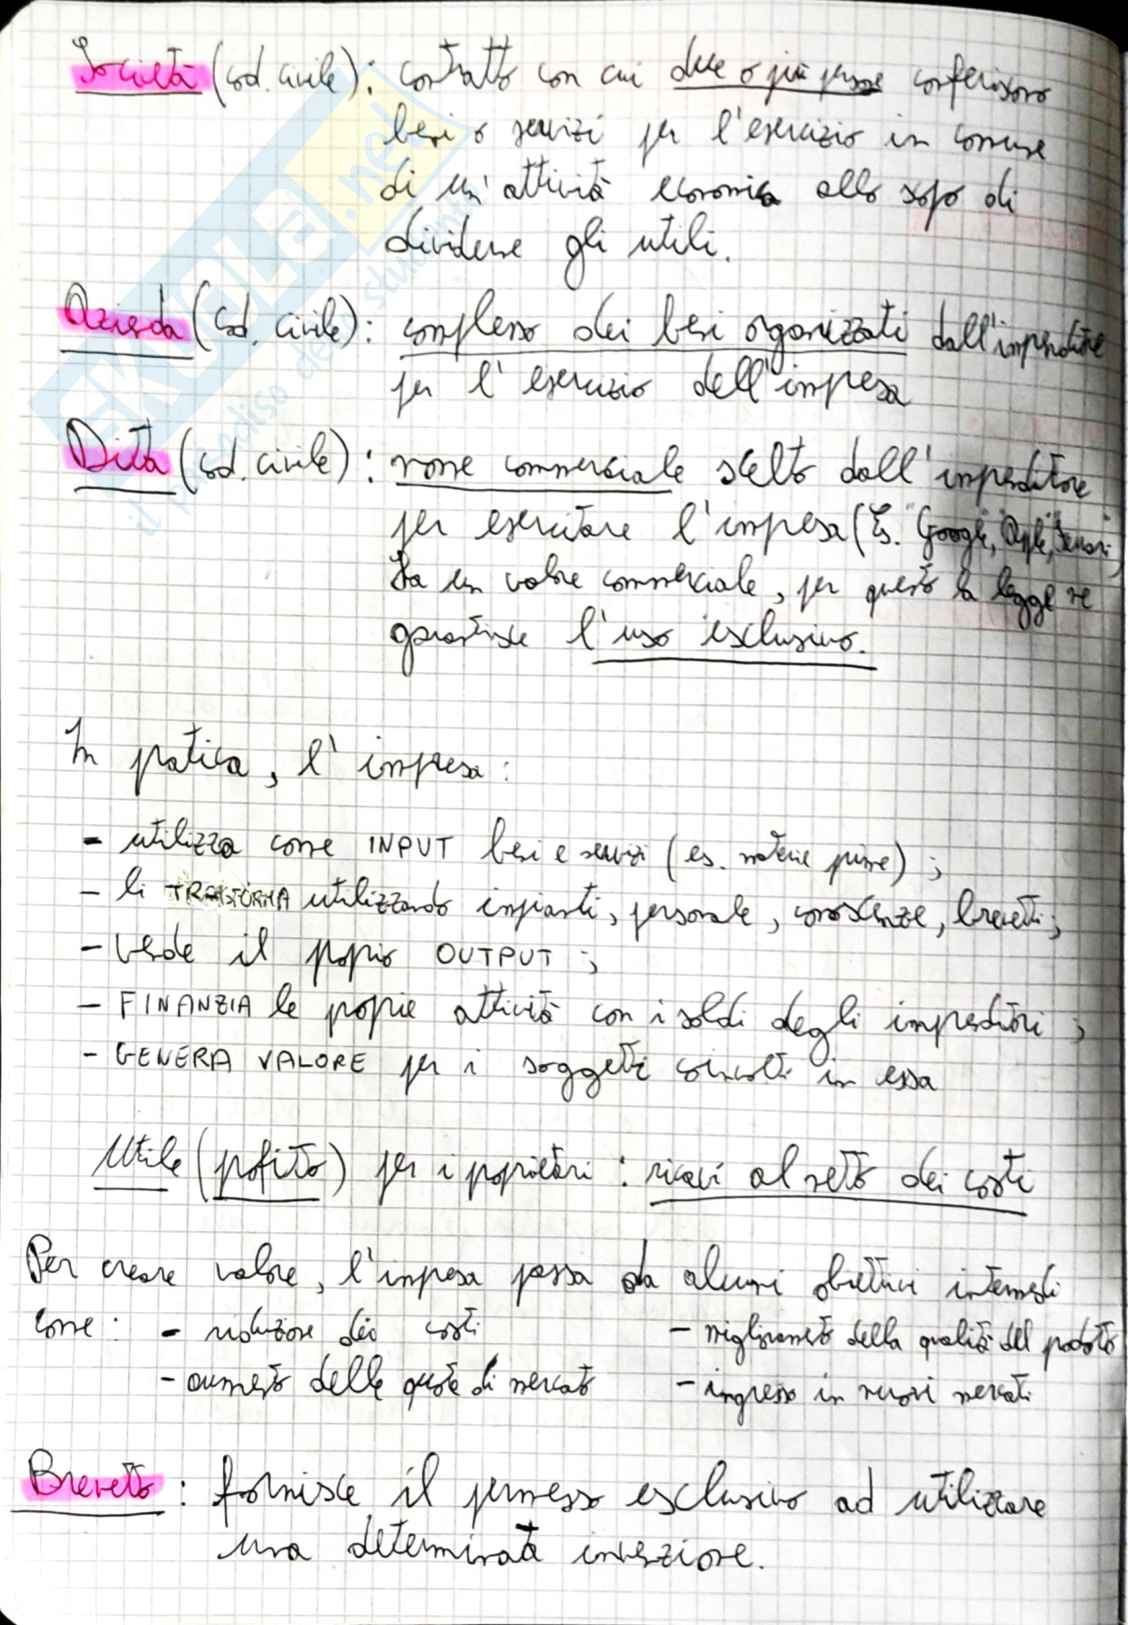 Società (cod. civile): contratto con cui due o più persone conferiscono
beni o servizi per l'esercizio in comune
di un'attività economica allo scopo di
dividerne gli utili.
Azienda (cod. civile): complesso dei beni organizzati dall'imprenditore
per l'esercizio dell'impresa
Ditta (cod. civile): nome commerciale scelto dall'imprenditore
per esercitare l'impresa (Es. "Google", "Apple", "Ferrari",
Ha un valore commerciale, per questo la legge ne
garantisce l'uso esclusivo.
In pratica, l'impresa:
- utilizza come INPUT beni e servizi (es. materie prime);
- li TRASFORMA utilizzando impianti, personale, conoscenze, brevetti;
- vende il proprio OUTPUT;
- FINANZIA le proprie attività con i soldi degli imprenditori;
- GENERA VALORE per i soggetti coinvolti in essa
Utile (profitto) per i proprietari: ricavi al netto dei costi
Per creare valore, l'impresa passa da alcuni obiettivi intermedi
come: - riduzione dei costi - miglioramento della qualità del prodotto
- aumento delle quote di mercato - ingresso in nuovi mercati
Brevetto: fornisce il permesso esclusivo ad utilizzare
una determinata invenzione.
SKUOLA.net
il paradiso dello studente